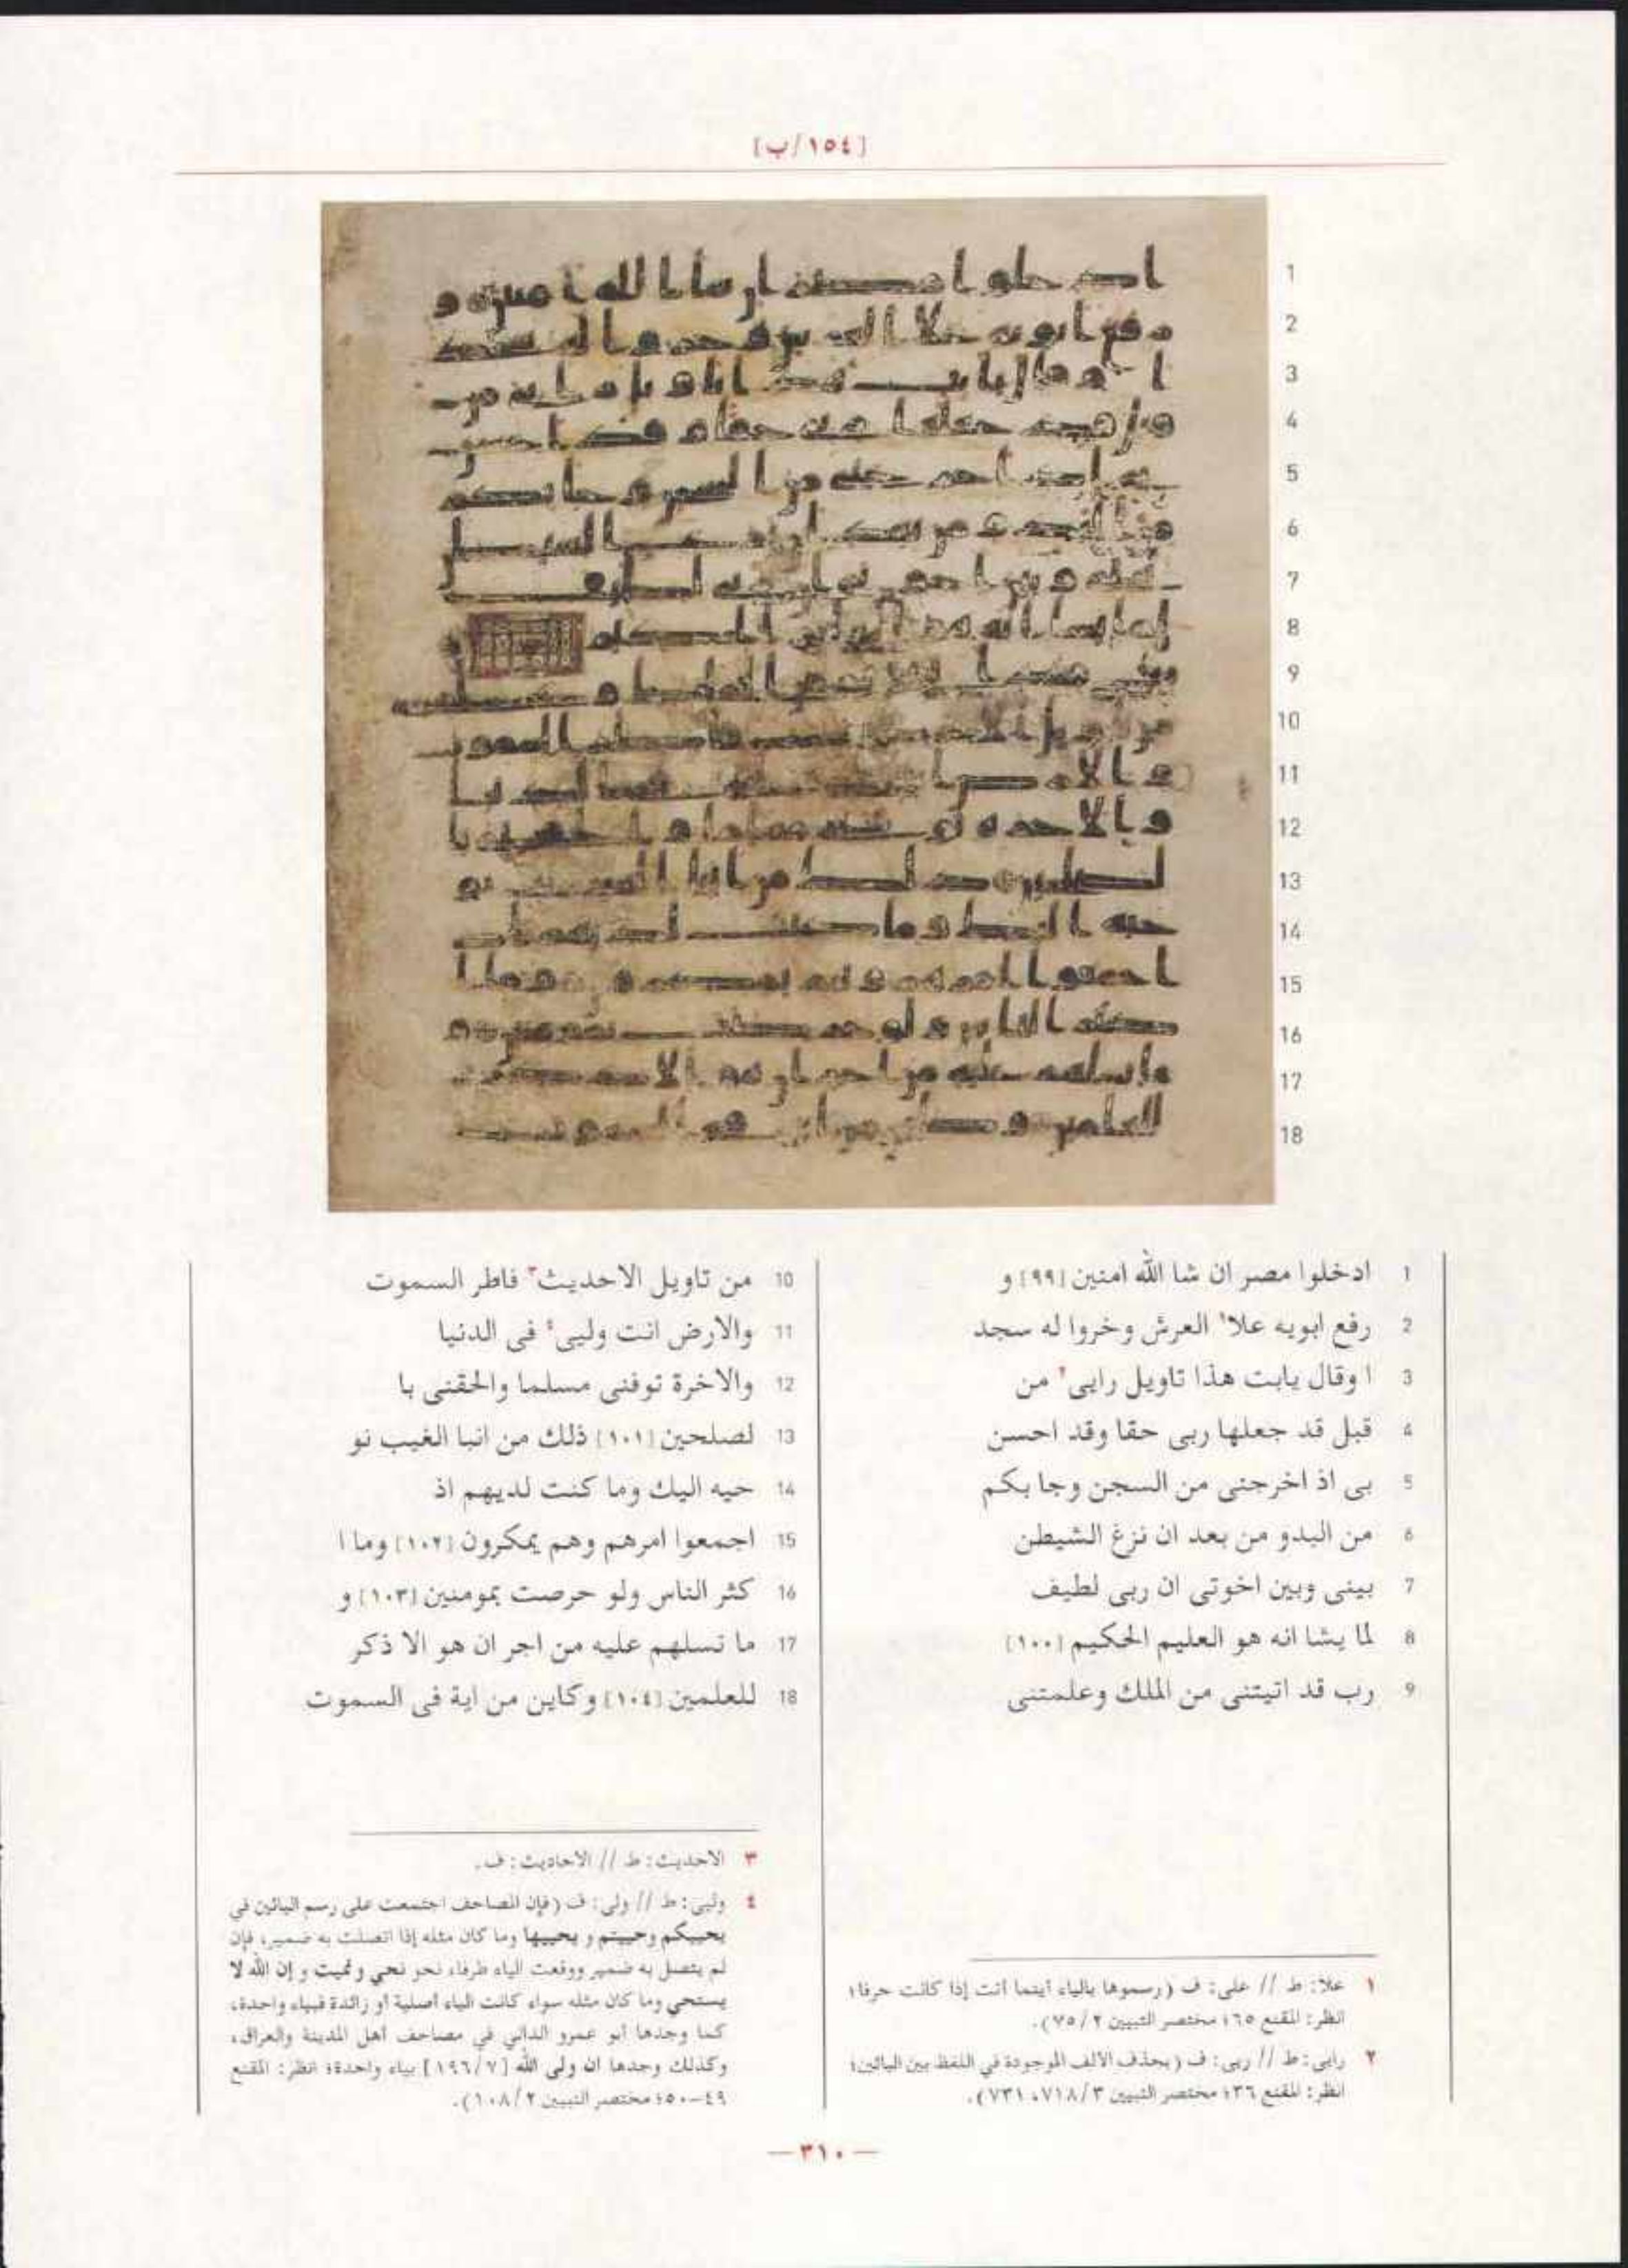 [١٥٤/ب]
1 ادخلوا مصر ان شا الله امنين [٩٩] و
2 رفع ابويه علا١ العرش وخروا له سجد
3 ا وقال يابت هذا تاويل رايى٢ من
4 قبل قد جعلها ربى حقا وقد احسن
5 بى اذ اخرجنى من السجن وجا بكم
6 من البدو من بعد ان نزغ الشيطن
7 بينى وبين اخوتى ان ربى لطيف
8 لما يشا انه هو العليم الحكيم [١٠٠]
9 رب قد اتيتنى من الملك وعلمتنى
10 من تاويل الاحديث٣ فاطر السموت
11 والارض انت وليى٤ فى الدنيا
12 والاخرة توفنى مسلما والحقنى با
13 لصلحين [١٠١] ذلك من انبا الغيب نو
14 حيه اليك وما كنت لديهم اذ
15 اجمعوا امرهم وهم يمكرون [١٠٢] وما ا
16 كثر الناس ولو حرصت بمومنين [١٠٣] و
17 ما تسلهم عليه من اجر ان هو الا ذكر
18 للعلمين [١٠٤] وكاين من اية فى السموت
١ علا: ط // على: ف (رسموها بالياء أينما أتت إذا كانت حرفا؛
انظر: المقنع ٦٥؛ مختصر التبيين ٧٥/٢).
٢ رايى: ط // ريى: ف (بحذف الالف الموجودة في اللفظ بين اليائين؛
انظر: المقنع ٣٦؛ مختصر التبيين ٧١٨/٣، ٧٣١).
٣ الاحديث: ط // الاحاديث: ف.
٤ وليى: ط // ولى: ف (فإن المصاحف اجتمعت على رسم اليائين في
يحييكم وحييتم و يحييها وما كان مثله إذا اتصلت به ضمير، فإن
لم يتصل به ضمير ووقعت الياء طرفا، نحو نحي ونميت و إن الله لا
يستحي وما كان مثله سواء كانت الياء أصلية أو زائدة فبياء واحدة،
كما وجدها أبو عمرو الداني في مصاحف أهل المدينة والعراق،
وكذلك وجدها ان ولى الله [١٩٦/٧] بياء واحدة؛ انظر: المقنع
٤٩-٥٠؛ مختصر التبيين ١٠٨/٢).
— ٣١٠ —